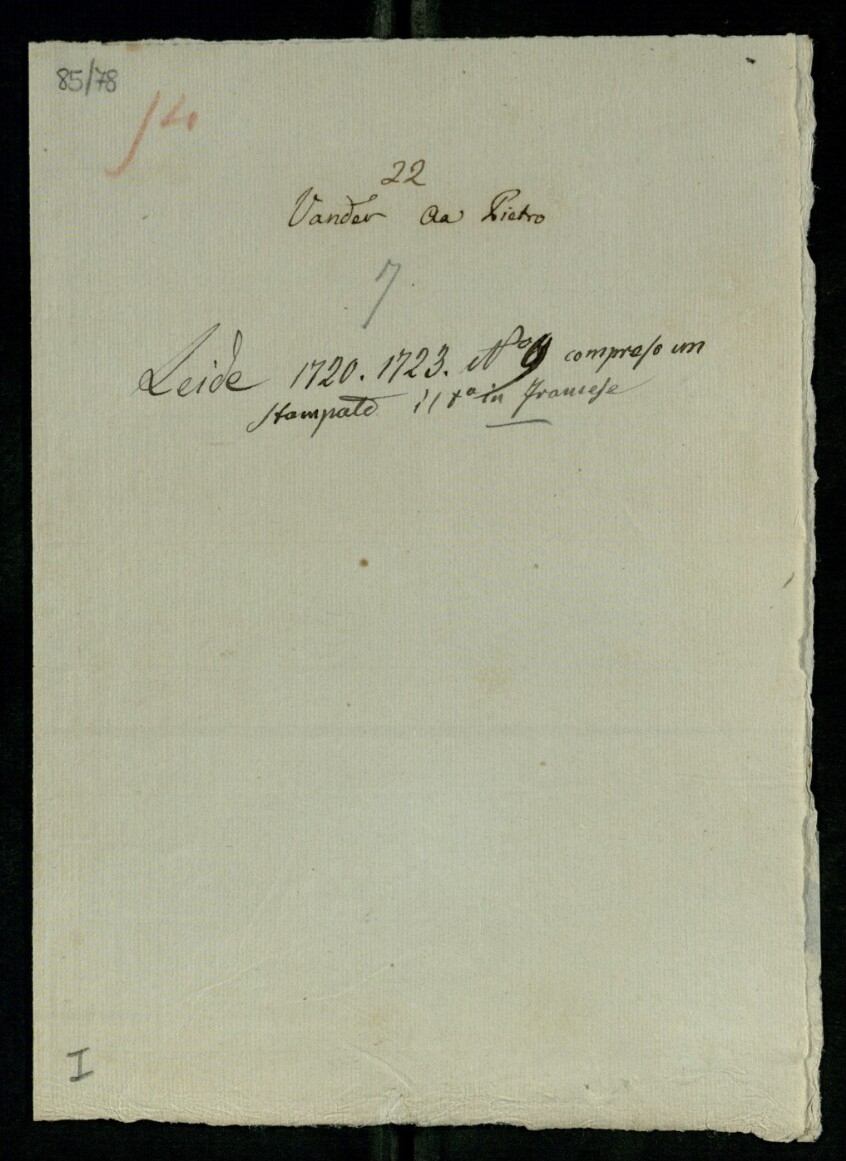 85/78
14
22
Vander Aa Pietro
7
Leide 1720. 1723. N.º 9 compreso un
stampato in Francese
I